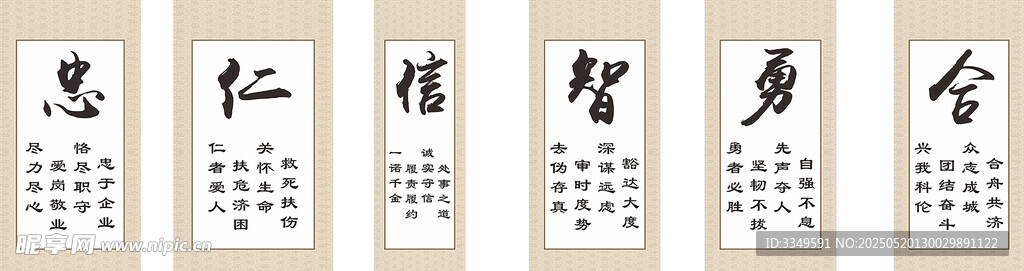 忠
忠于企业
恪尽职守
爱岗敬业
尽力尽心
仁
救死扶伤
关怀生命
扶危济困
仁者爱人
信
处事之道
诚实守信
履责履约
一诺千金
智
豁达大度
深谋远虑
审时度势
去伪存真
勇
自强不息
先声夺人
坚韧不拔
勇者必胜
合
合舟共济
众志成城
团结奋斗
兴我科伦
昵享网 www.nipic.cn
ID:3349591 NO:20250520130029891122